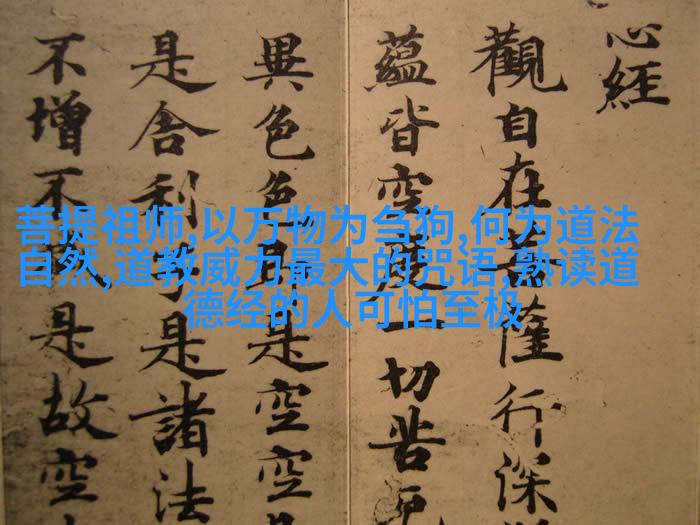 心經
觀自在菩薩行深
蘊皆空度一切苦厄
異色色即是空空
是舍利子是諸法
不增不是故空
菩提祖师,以万物为刍狗,何为道法
自然,道教威力最大的咒语,熟读道
德经的人可怕至极